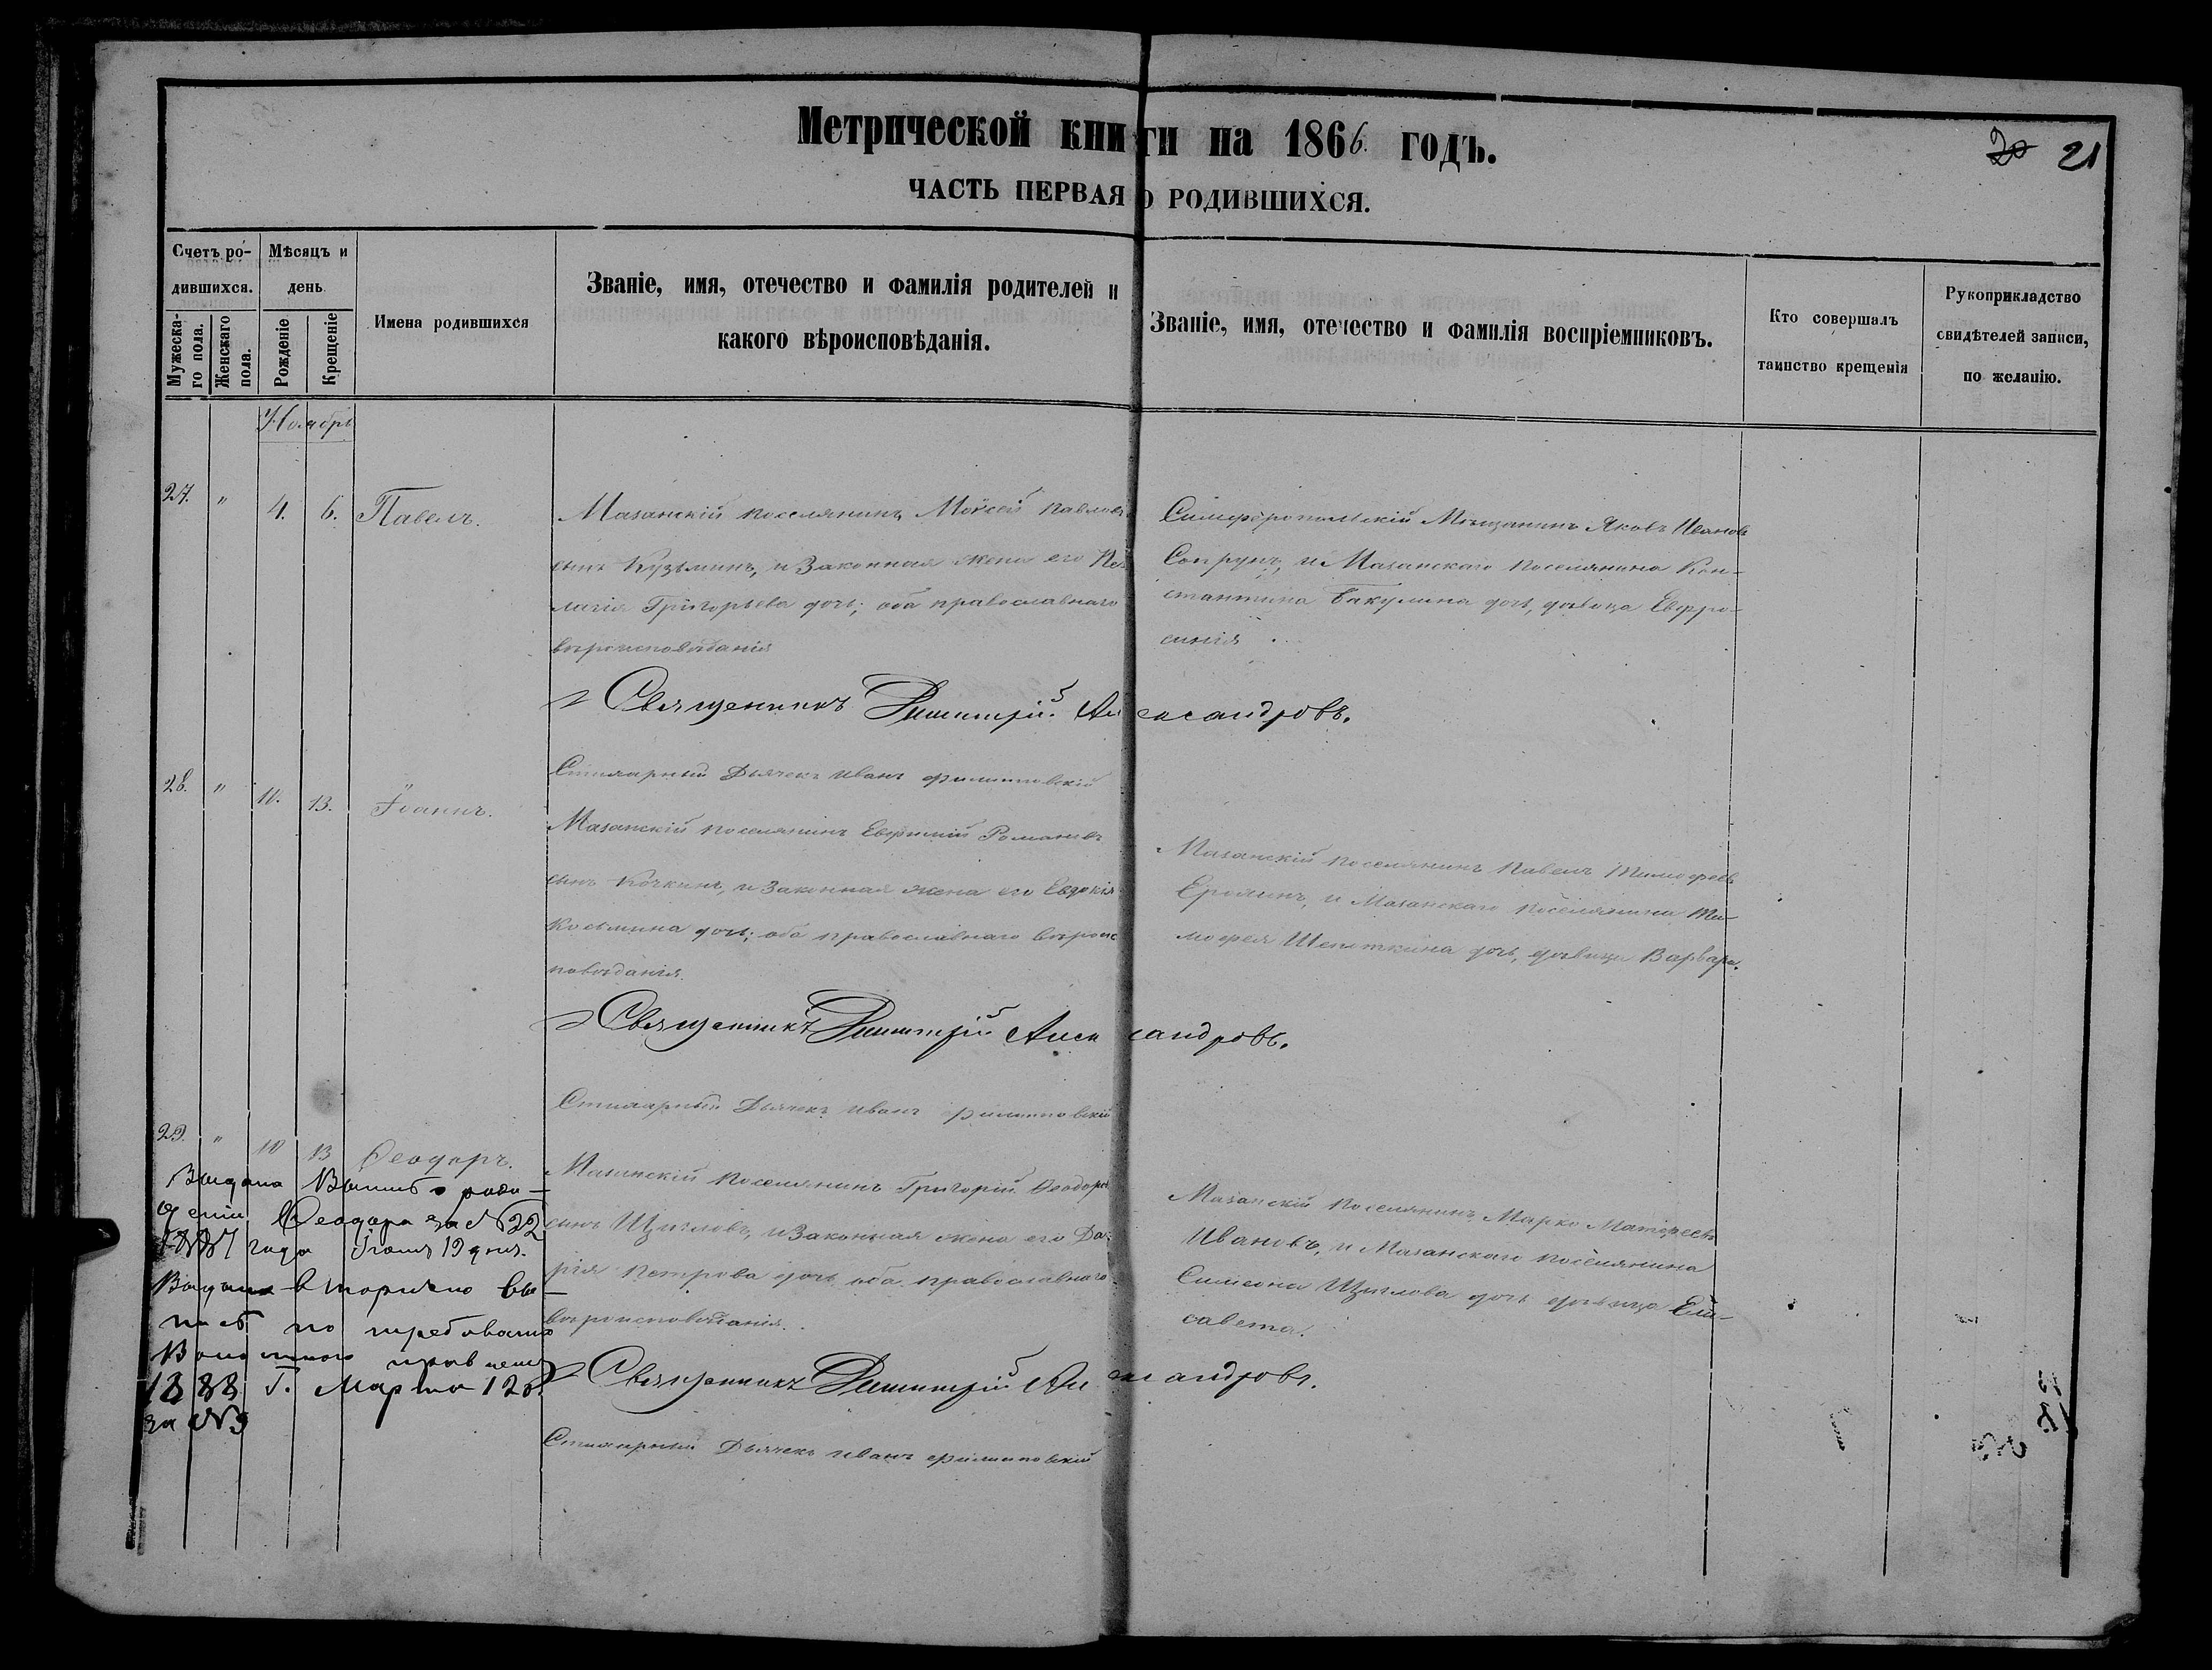 Метрической книги на 1866. годъ.
20 21
ЧАСТЬ ПЕРВАЯ О РОДИВШИХСЯ.
Счетъ ро-
дившихся.
Мужеска-
го пола.
Женскаго
пола.
Мѣсяцъ и
день
Рожденіе
Крещеніе
Имена родившихся
Званіе, имя, отечество и фамилія родителей и
какого вѣроисповѣданія.
Званіе, имя, отечество и фамилія воспріемниковъ.
Кто совершалъ
таинство крещенія
Рукоприкладство
свидѣтелей записи,
по желанію.
Ноябрь
27. " 4. 6. Павелъ.
Мазанскій поселянинъ Моѵсей Павловъ
сынъ Кузьминъ, и Законная жена его Пе-
лагія Григорьева дочь; оба православнаго
вѣроисповѣданія
Симферопольскій Мѣщанинъ Яковъ Ивановъ
Сопрунъ, и Мазанскаго поселянина Кон-
стантина Бакулина дочь, дѣвица Евфро-
синія.
Священникъ Димитрій Александровъ.
Стихарный Дьячекъ Иванъ Филипповскій
28. " 11. 13. Іоаннъ.
Мазанскій поселянинъ Евфимій Романовъ
сынъ Кочкинъ, и Законная жена его Евдокія
Косьмина дочь; оба православнаго вѣроис
повѣданія.
Мазанскій поселянинъ Павелъ Тимофеевъ
Ерохинъ, и Мазанскаго поселянина Ти-
мофея Шепоткина дочь, дѣвица Варвара.
Священникъ Димитрій Александровъ.
Стихарный Дьячекъ Иванъ Филипповскій
29. " 10 13 Ѳеодоръ.
Мазанскій поселянинъ Григорій Ѳеодоровъ
сынъ Щигловъ, и Законная жена его Да-
рія Петрова дочь оба православнаго
вѣроисповѣданія.
Мазанскій поселянинъ Марко Матфеевъ
Ивановъ, и Мазанскаго поселянина
Симеона Щиглова дочь дѣвица Ели-
савета.
Священникъ Димитрій Александровъ.
Стихарный Дьячекъ Иванъ Филипповскій
Выдана Выпись о рож-
деніи Ѳеодора за №22
1887 года Іюня 19 дня.
Выдана вторично вы-
пись по требованію
Волостного правленія
1888 г. Марта 12 д.
за №9